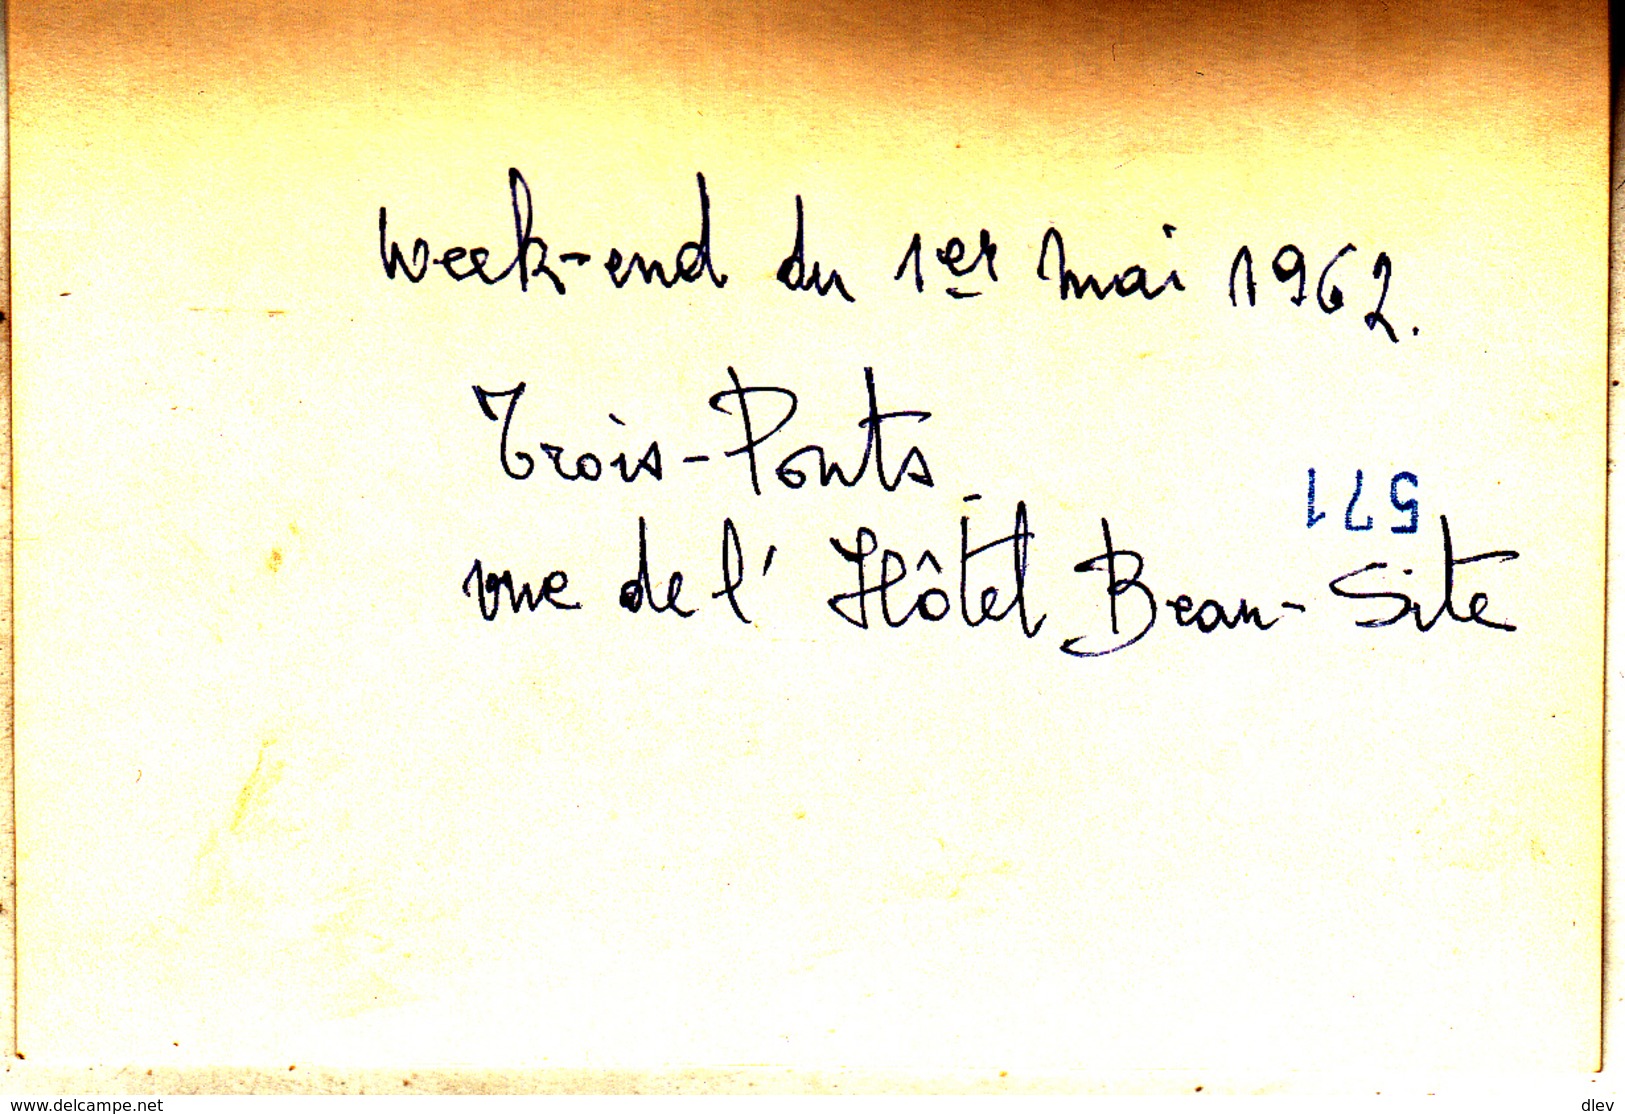 week-end du 1er mai 1962.
Trois-Ponts
571
vue de l'Hôtel Beau-Site
www.delcampe.net
dlev